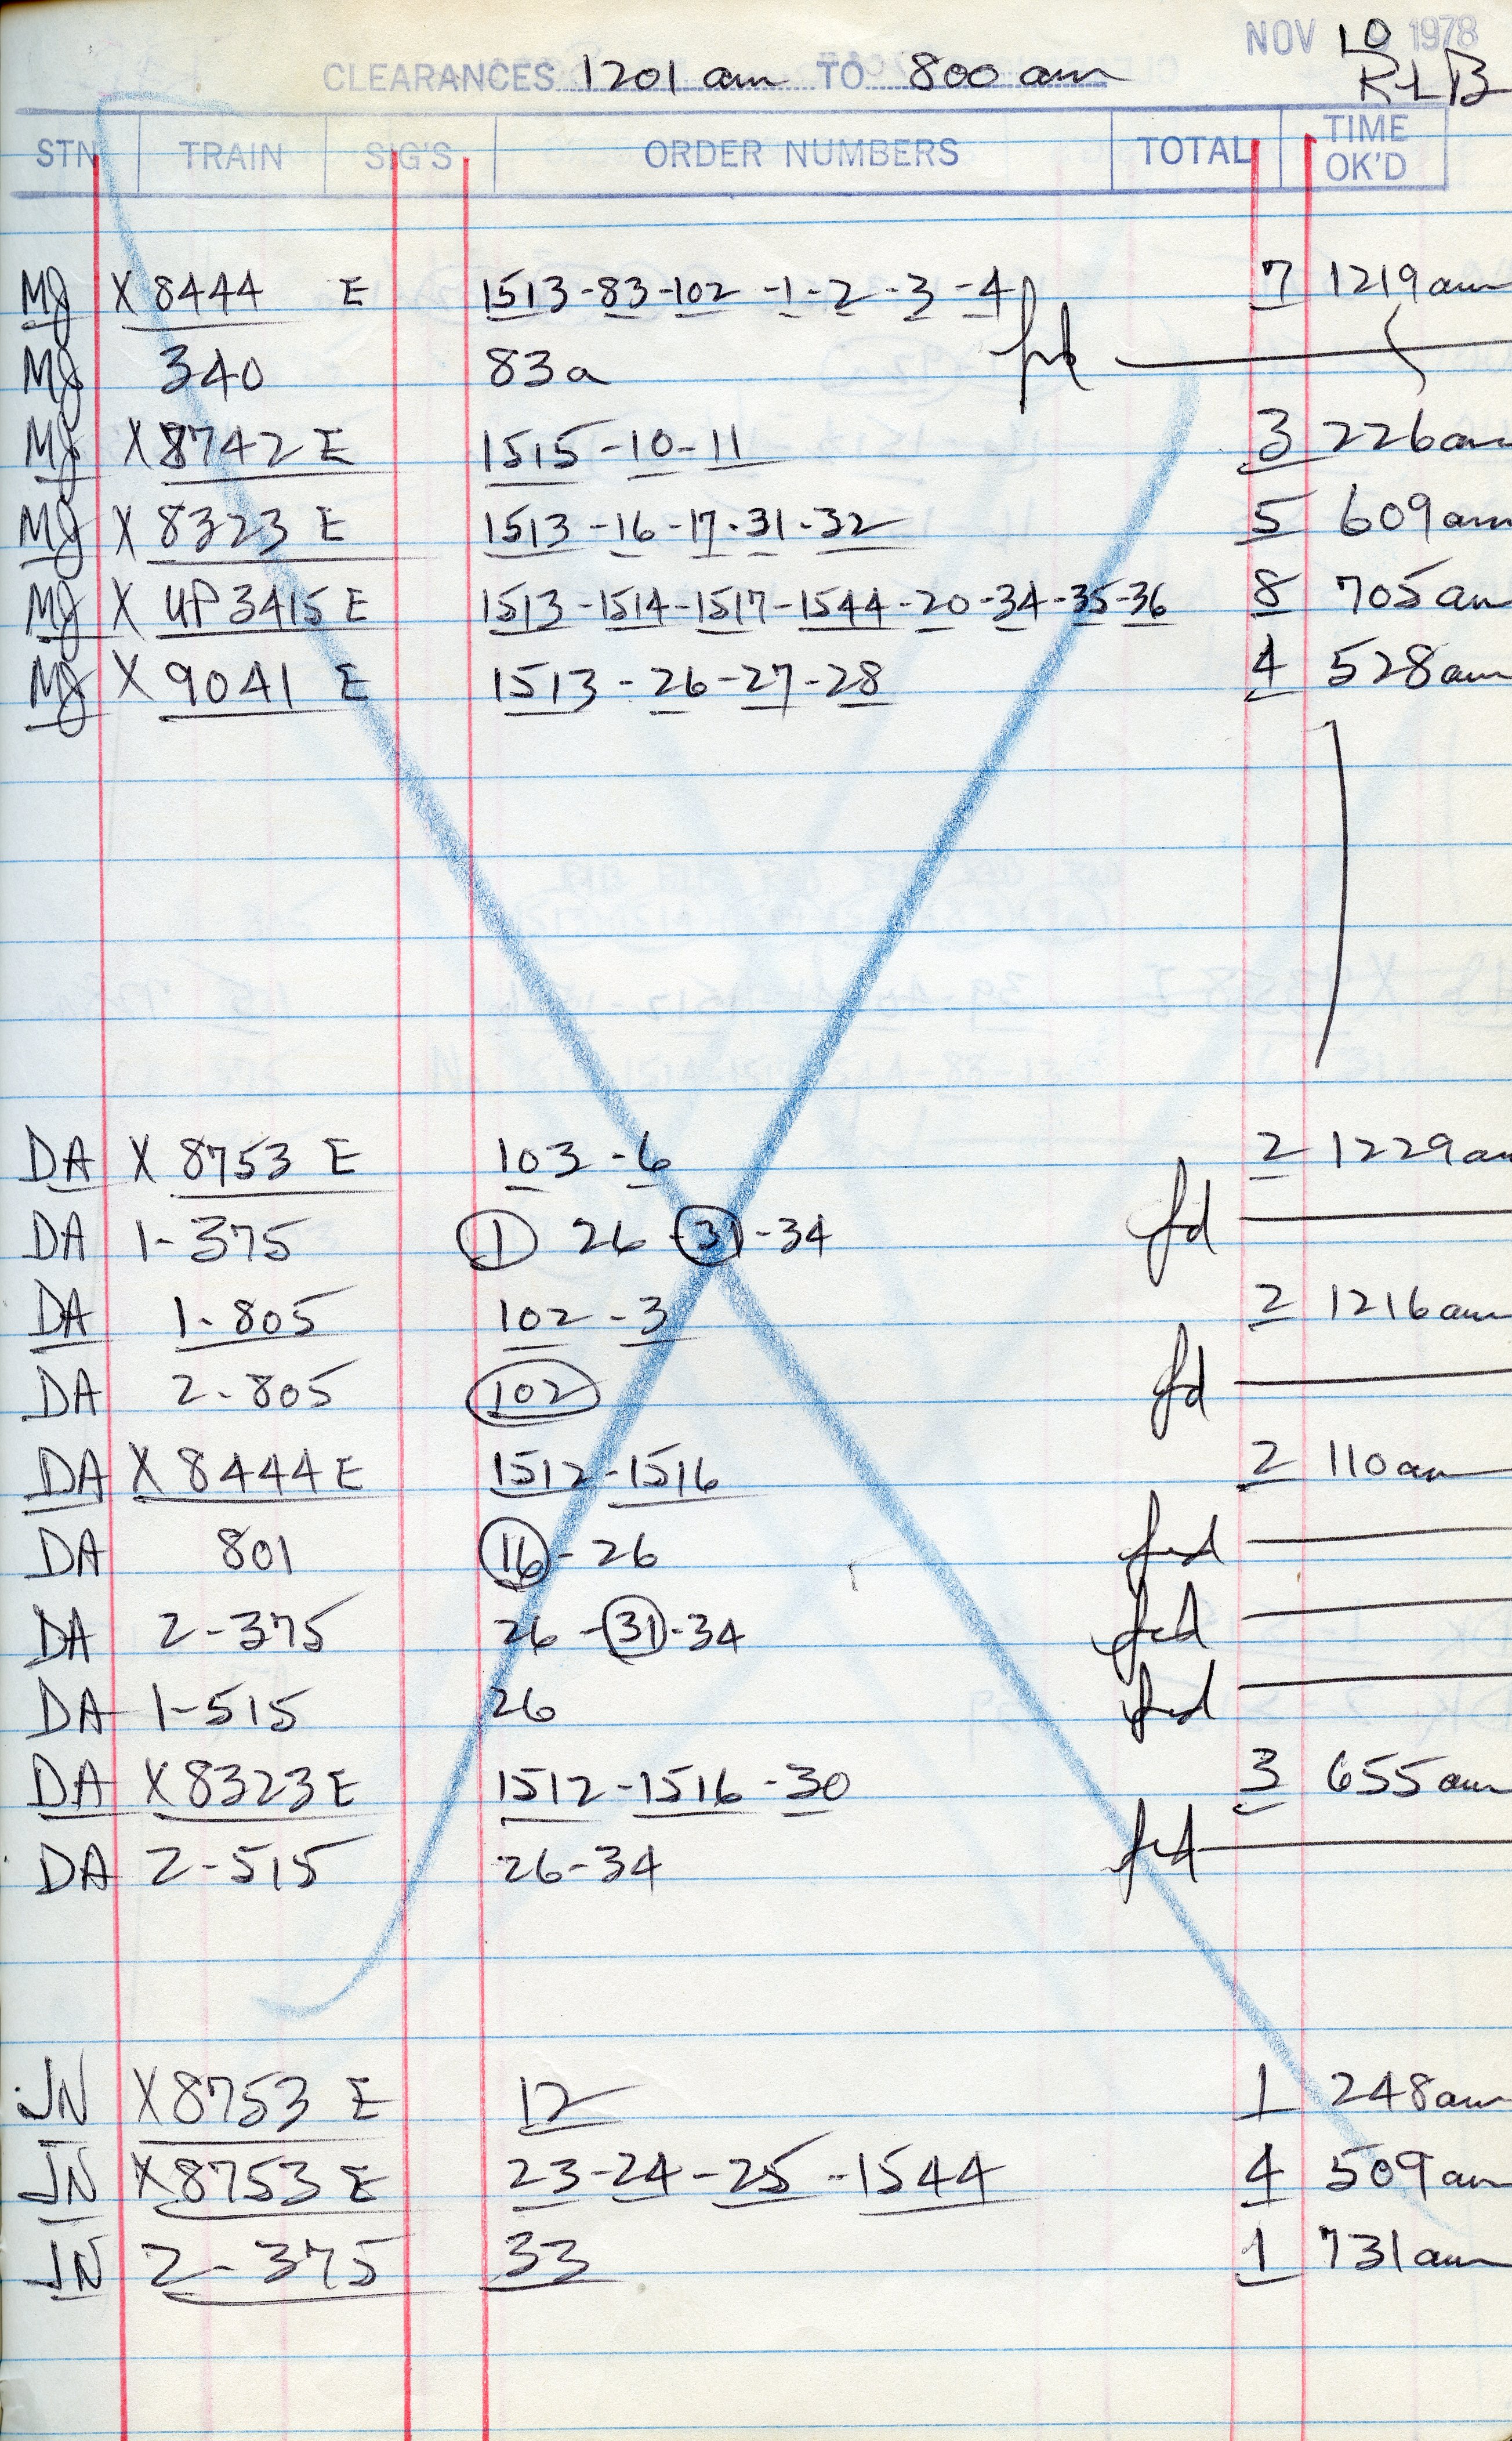 NOV 10 1978
CLEARANCES 1201 am TO 800 am RLB
STN TRAIN SIG'S ORDER NUMBERS TOTAL TIME OK'D
MJ X 8444 E 1513-83-102-1-2-3-4 7 1219am
MJ 340 83a
MJ X 8742 E 1515-10-11 3 226am
MJ X 8323 E 1513-16-17-31-32 5 609am
MJ X UP 3415 E 1513-1514-1517-1544-20-34-35-36 8 705am
MJ X 9041 E 1513-26-27-28 4 528am
DA X 8753 E 103-6 2 1229am
DA 1-375 1 26-31-34 fd
DA 1-805 102-3 2 1216am
DA 2-805 102 fd
DA X 8444 E 1512-1516 2 110am
DA 801 16-26
DA 2-375 26-31-34
DA 1-515 26
DA X 8323 E 1512-1516-30 3 655am
DA 2-515 26-34
JN X 8753 E 12 1 248am
JN X 8753 E 23-24-25-1544 4 509am
JN 2-375 33 1 731am